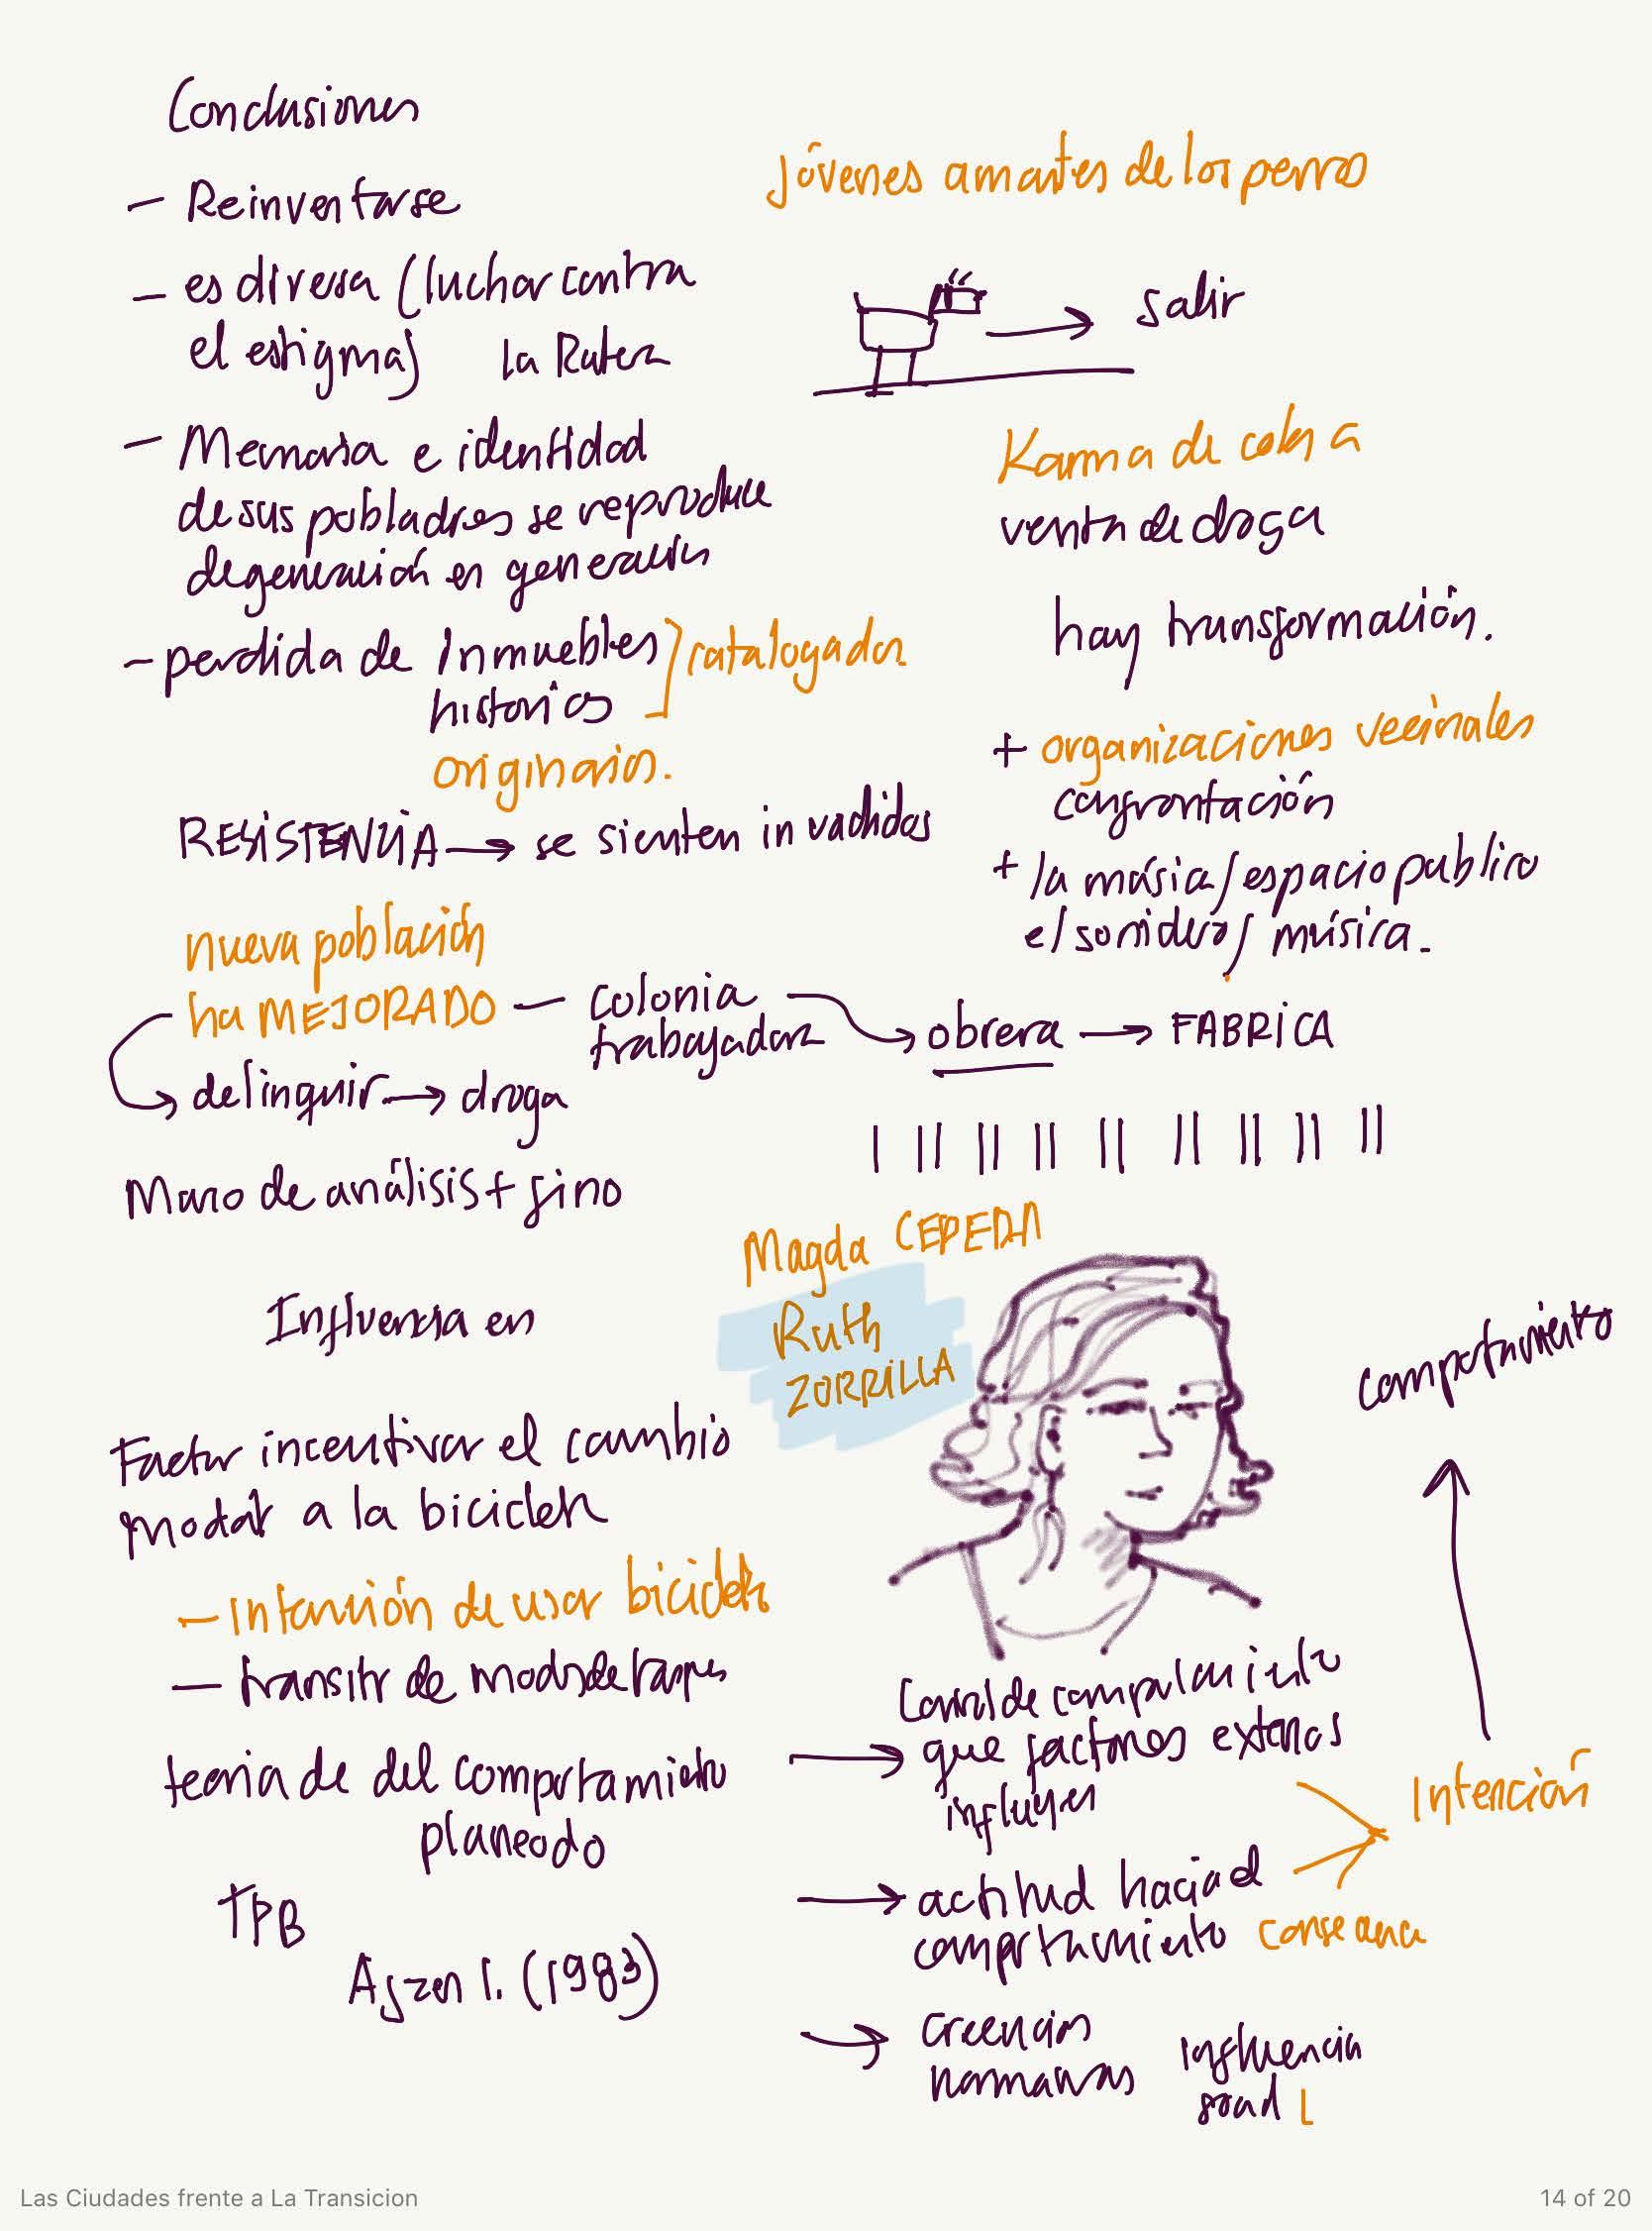 Conclusiones
— Reinventarse
— es diversa (luchar contra
el estigma) la
— Memoria e identidad
de sus pobladores se reproduce
de generación en generación
— perdida de Inmuebles
historicos
catalogados
originarios.
RESiSTENCiA → se sienten invadidos
nueva población
ha MEJORADO — colonia
trabajadora → obrera → FABRiCA
delinquir → droga
Marco de análisis + fino
jóvenes amantes de los perros
→ salir
Karma de
venta de droga
hay transformación.
+ organizaciones vecinales
confrontación
+ la música / espacio publico
el sonidero / música.
Influencia en
Magda CEPEDA
Ruth
ZORRiLLA
Factor incentivar el cambio
modal a la bicicleta
— Intención de usar bicicleta
— transitr de
teoria de del comportamiento
planeado
TPB
Ajzen I. (1983)
→ Control de comportamiento
que factores externos
influyen
→ actitud hacia el
comportamiento
→ creencias
normativas influencia
social
Intención
comportamiento
Las Ciudades frente a La Transicion
14 of 20